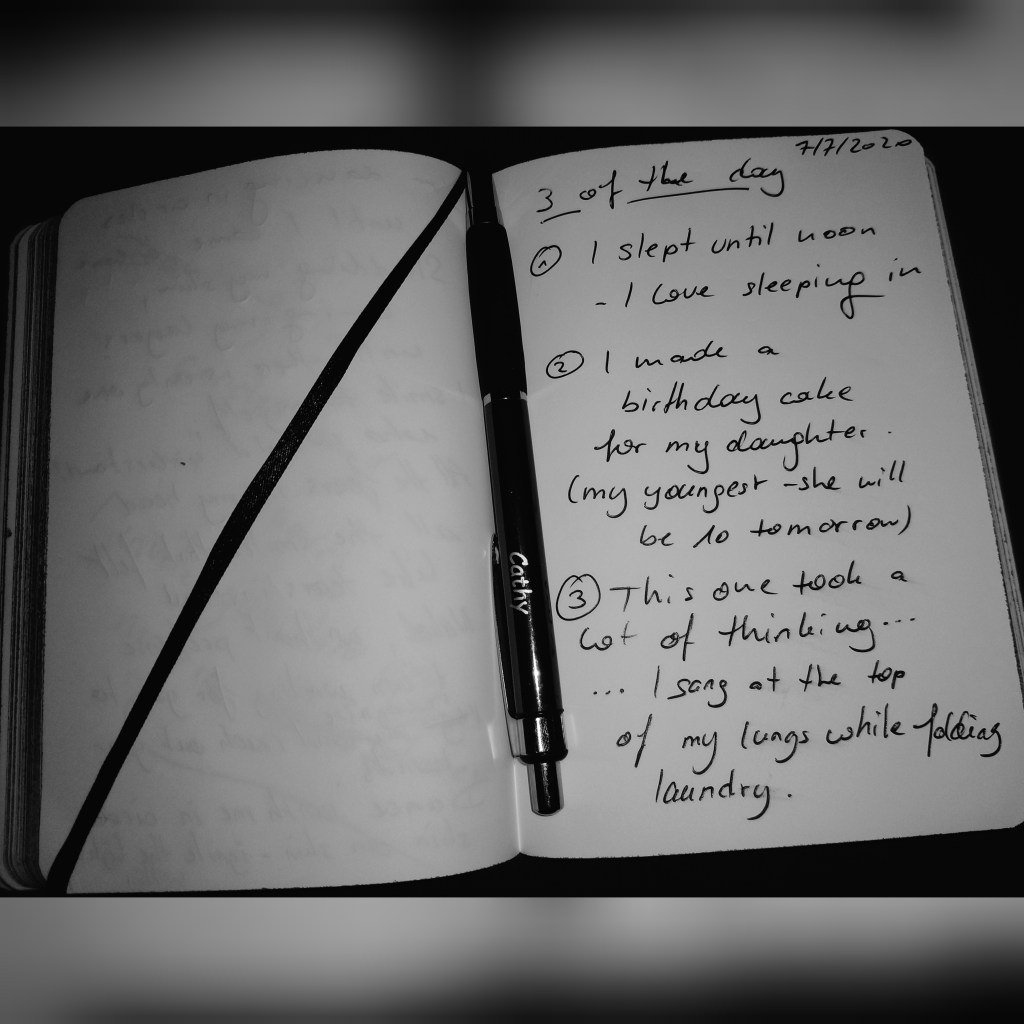 7/7/2020
3 of the day
① I slept until noon
- I love sleeping in
② I made a
birthday cake
for my daughter.
(my youngest - she will
be 10 tomorrow)
③ This one took a
lot of thinking...
... I sang at the top
of my lungs while folding
laundry.
Cathy